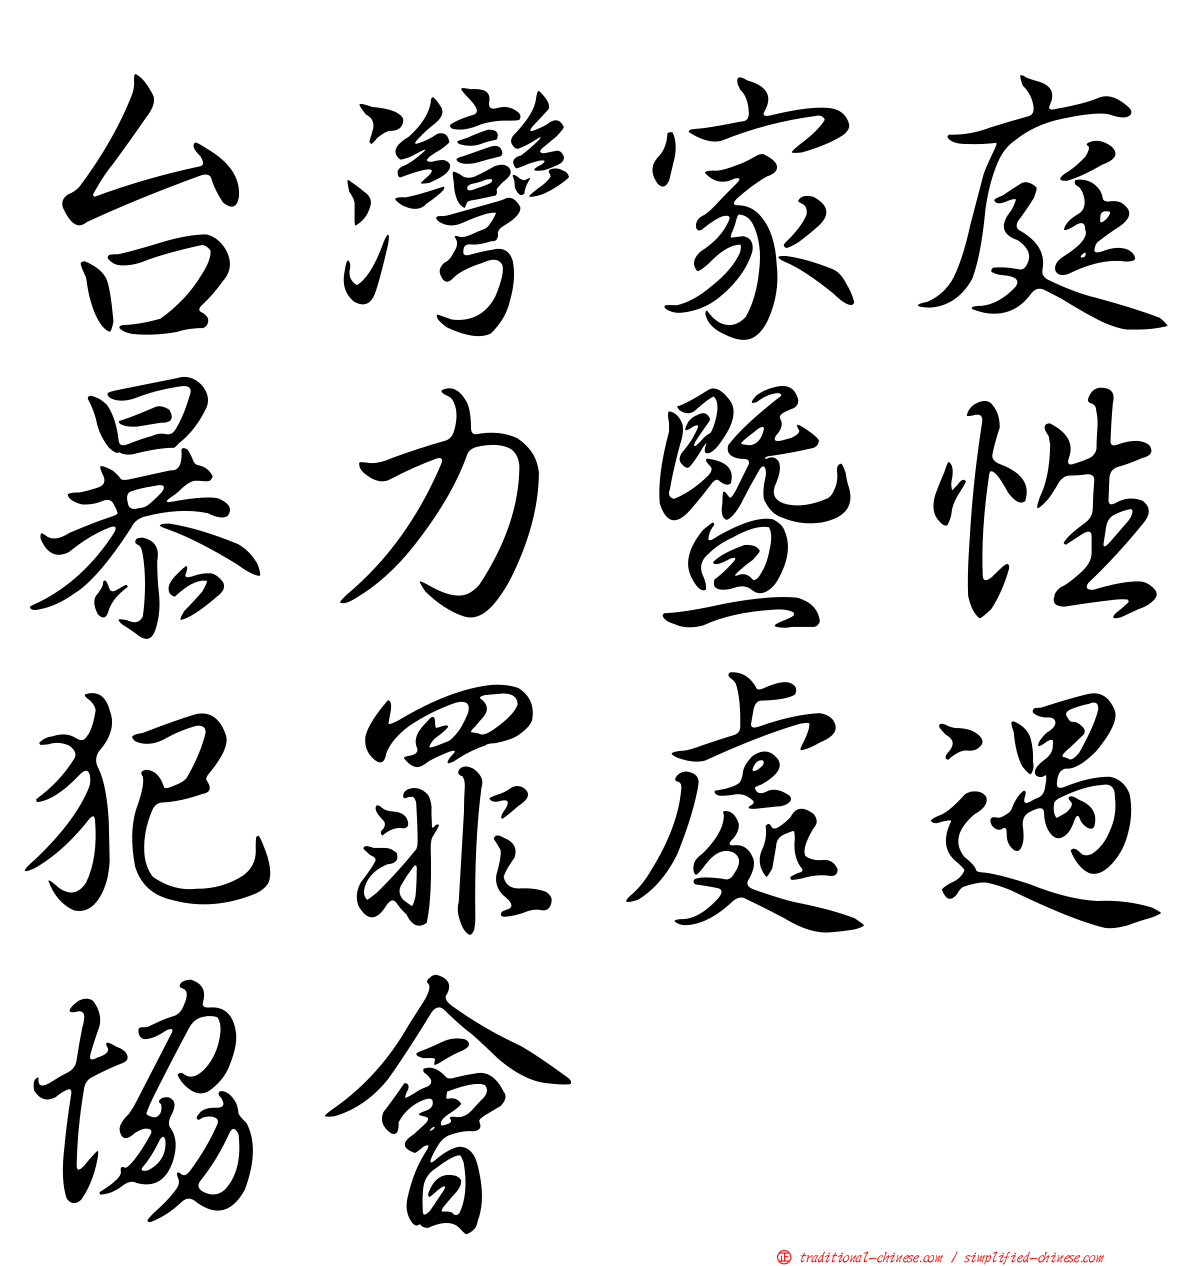 台灣家庭
暴力暨性
犯罪處遇
協會
正 traditional-chinese.com / simplified-chinese.com